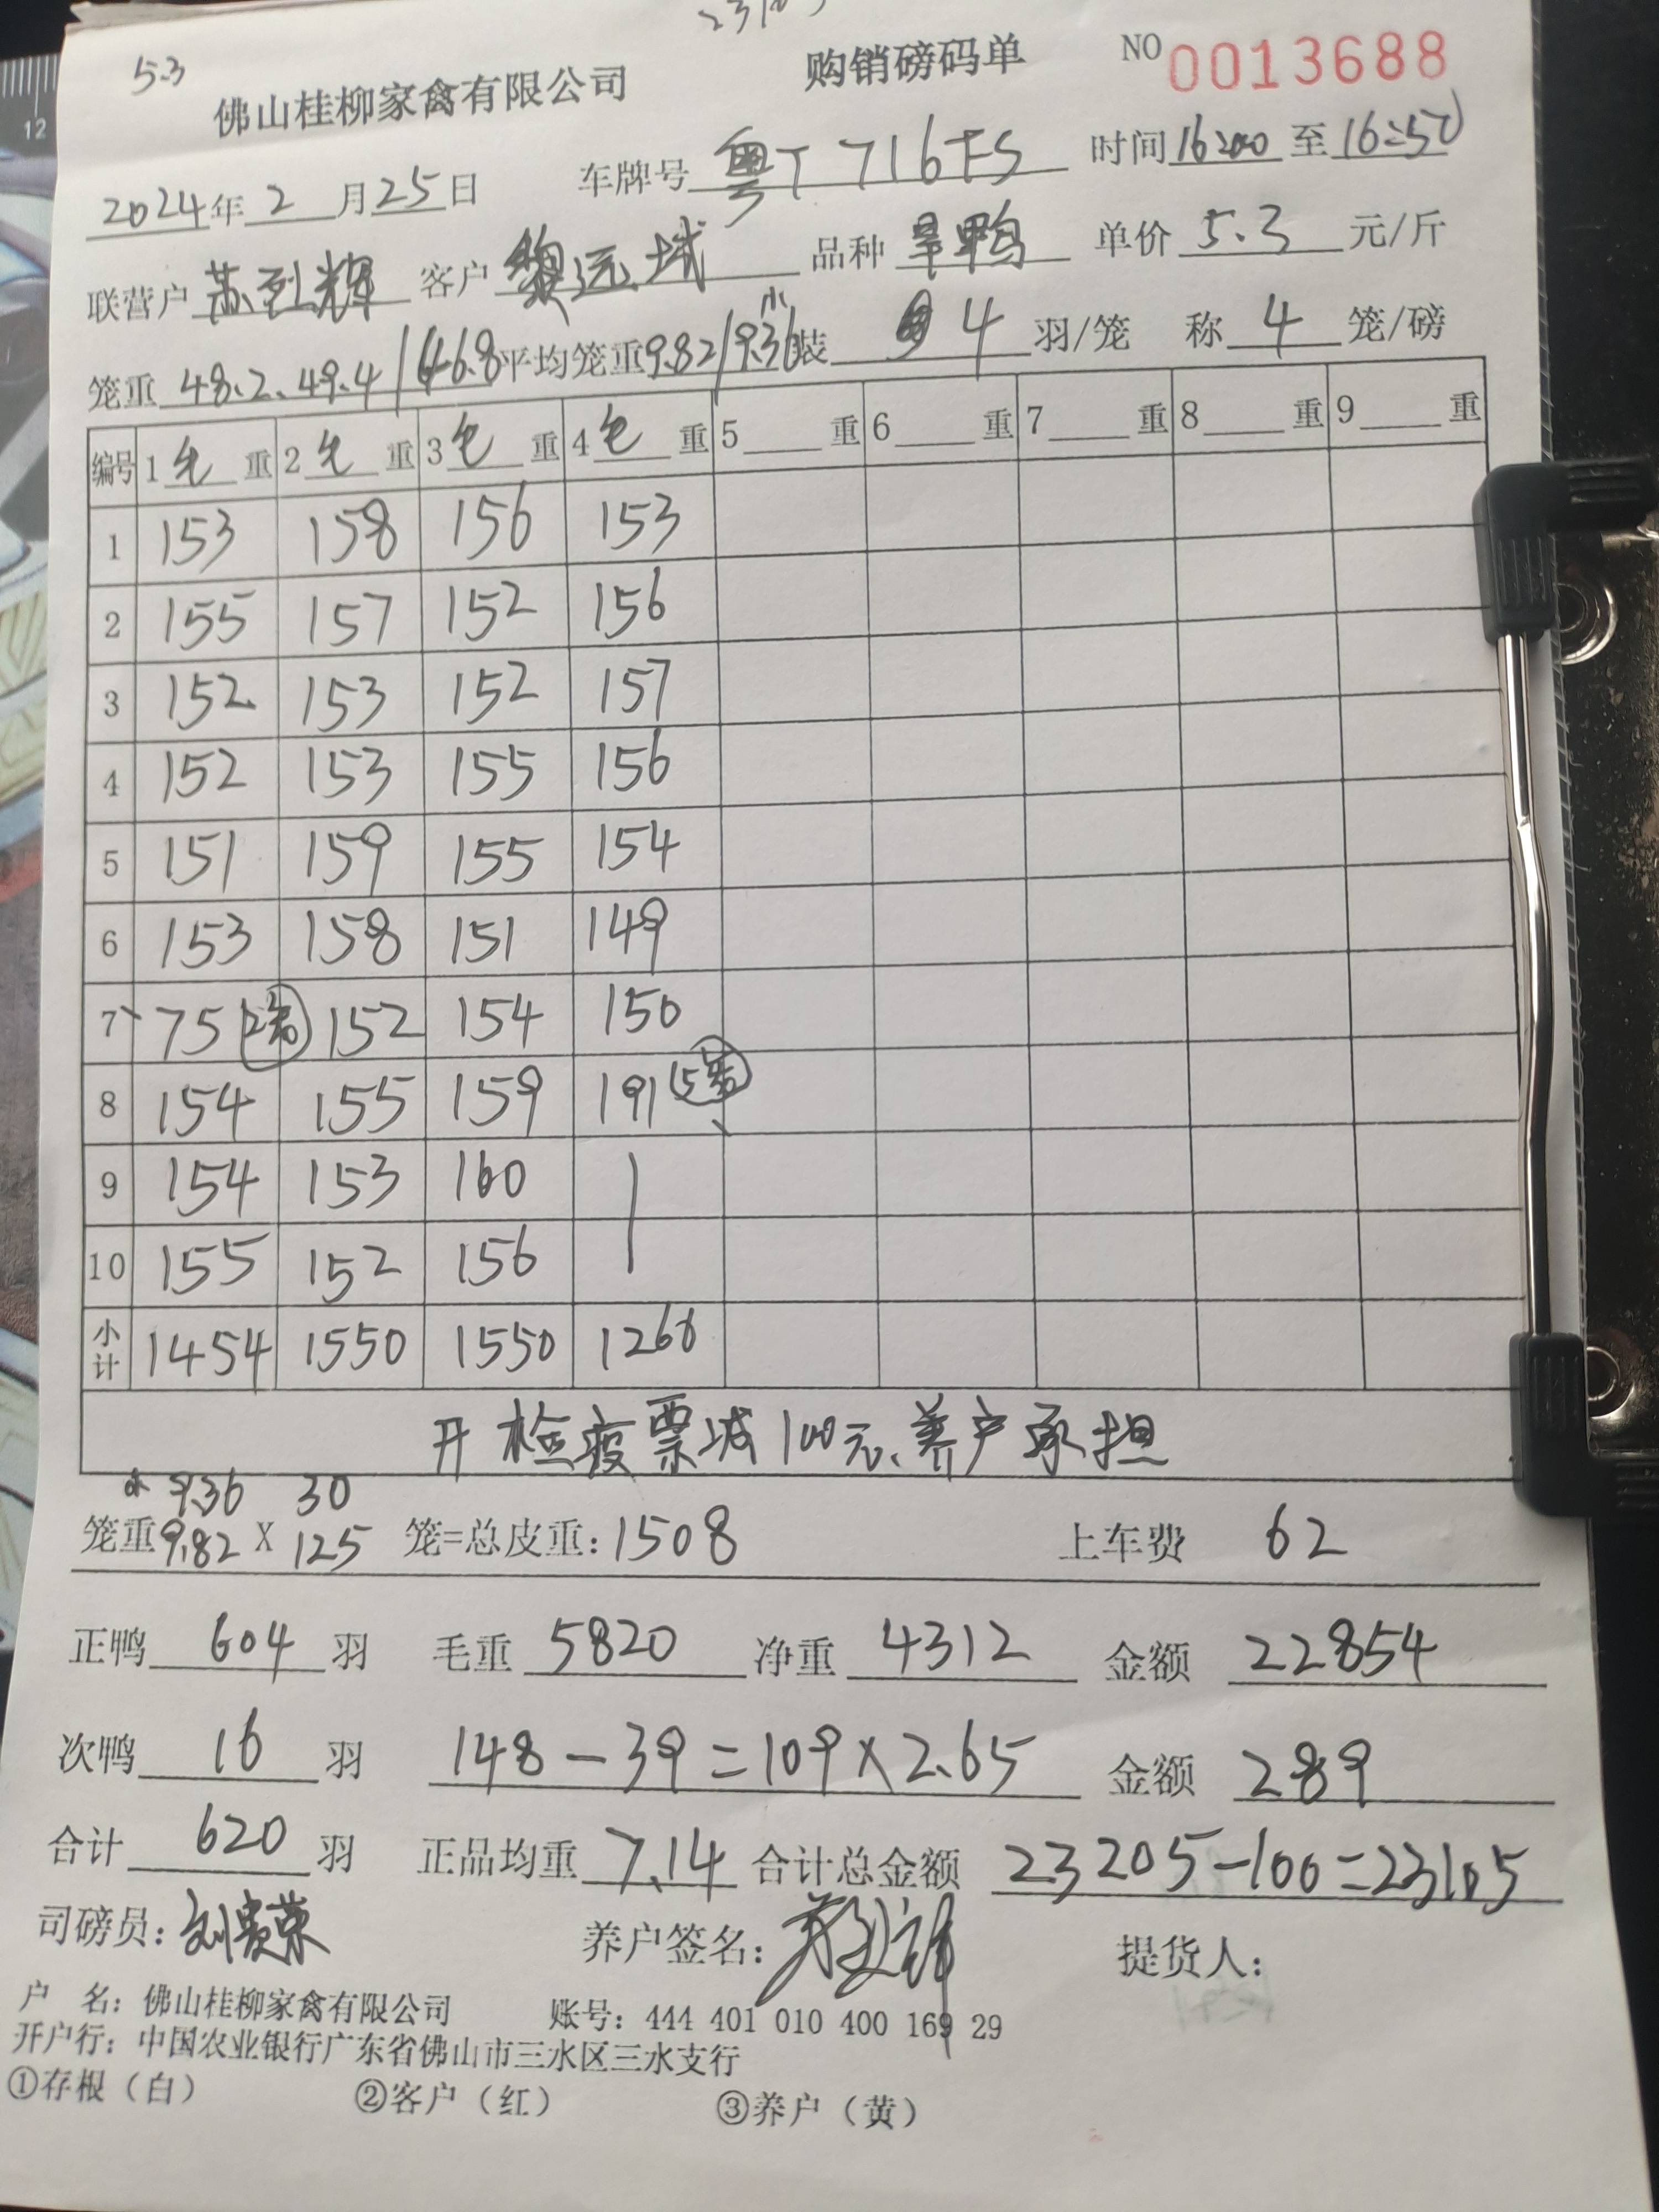 5.3
佛山桂柳家禽有限公司 购销磅码单 NO 0013688
2024年 2 月 25 日 车牌号 粤T 716FS 时间 16:00 至 16:50
联营户 苏烈辉 客户 黎远城 品种 旱鸭 单价 5.3 元/斤
笼重 48.2、49.4/46.8 平均笼重 9.82/9.36小 装 4 羽/笼 称 4 笼/磅
编号 1 毛 重 2 毛 重 3 毛 重 4 毛 重 5 重 6 重 7 重 8 重 9 重
1 153 158 156 153
2 155 157 152 156
3 152 153 152 157
4 152 153 155 156
5 151 159 155 154
6 153 158 151 149
7 75 (2笼) 152 154 150
8 154 155 159 191 (5笼)
9 154 153 160
10 155 152 156
小计 1454 1550 1550 1266
开检疫票减100元、养户承担
小 9.36 30
笼重 9.82 X 125 笼=总皮重: 1508 上车费 62
正鸭 604 羽 毛重 5820 净重 4312 金额 22854
次鸭 16 羽 148-39=109×2.65 金额 289
合计 620 羽 正品均重 7.14 合计总金额 23205-100=23105
司磅员: 刘贵荣 养户签名: 提货人:
户 名: 佛山桂柳家禽有限公司 账号: 444 401 010 400 169 29
开户行: 中国农业银行广东省佛山市三水区三水支行
①存根（白） ②客户（红） ③养户（黄）